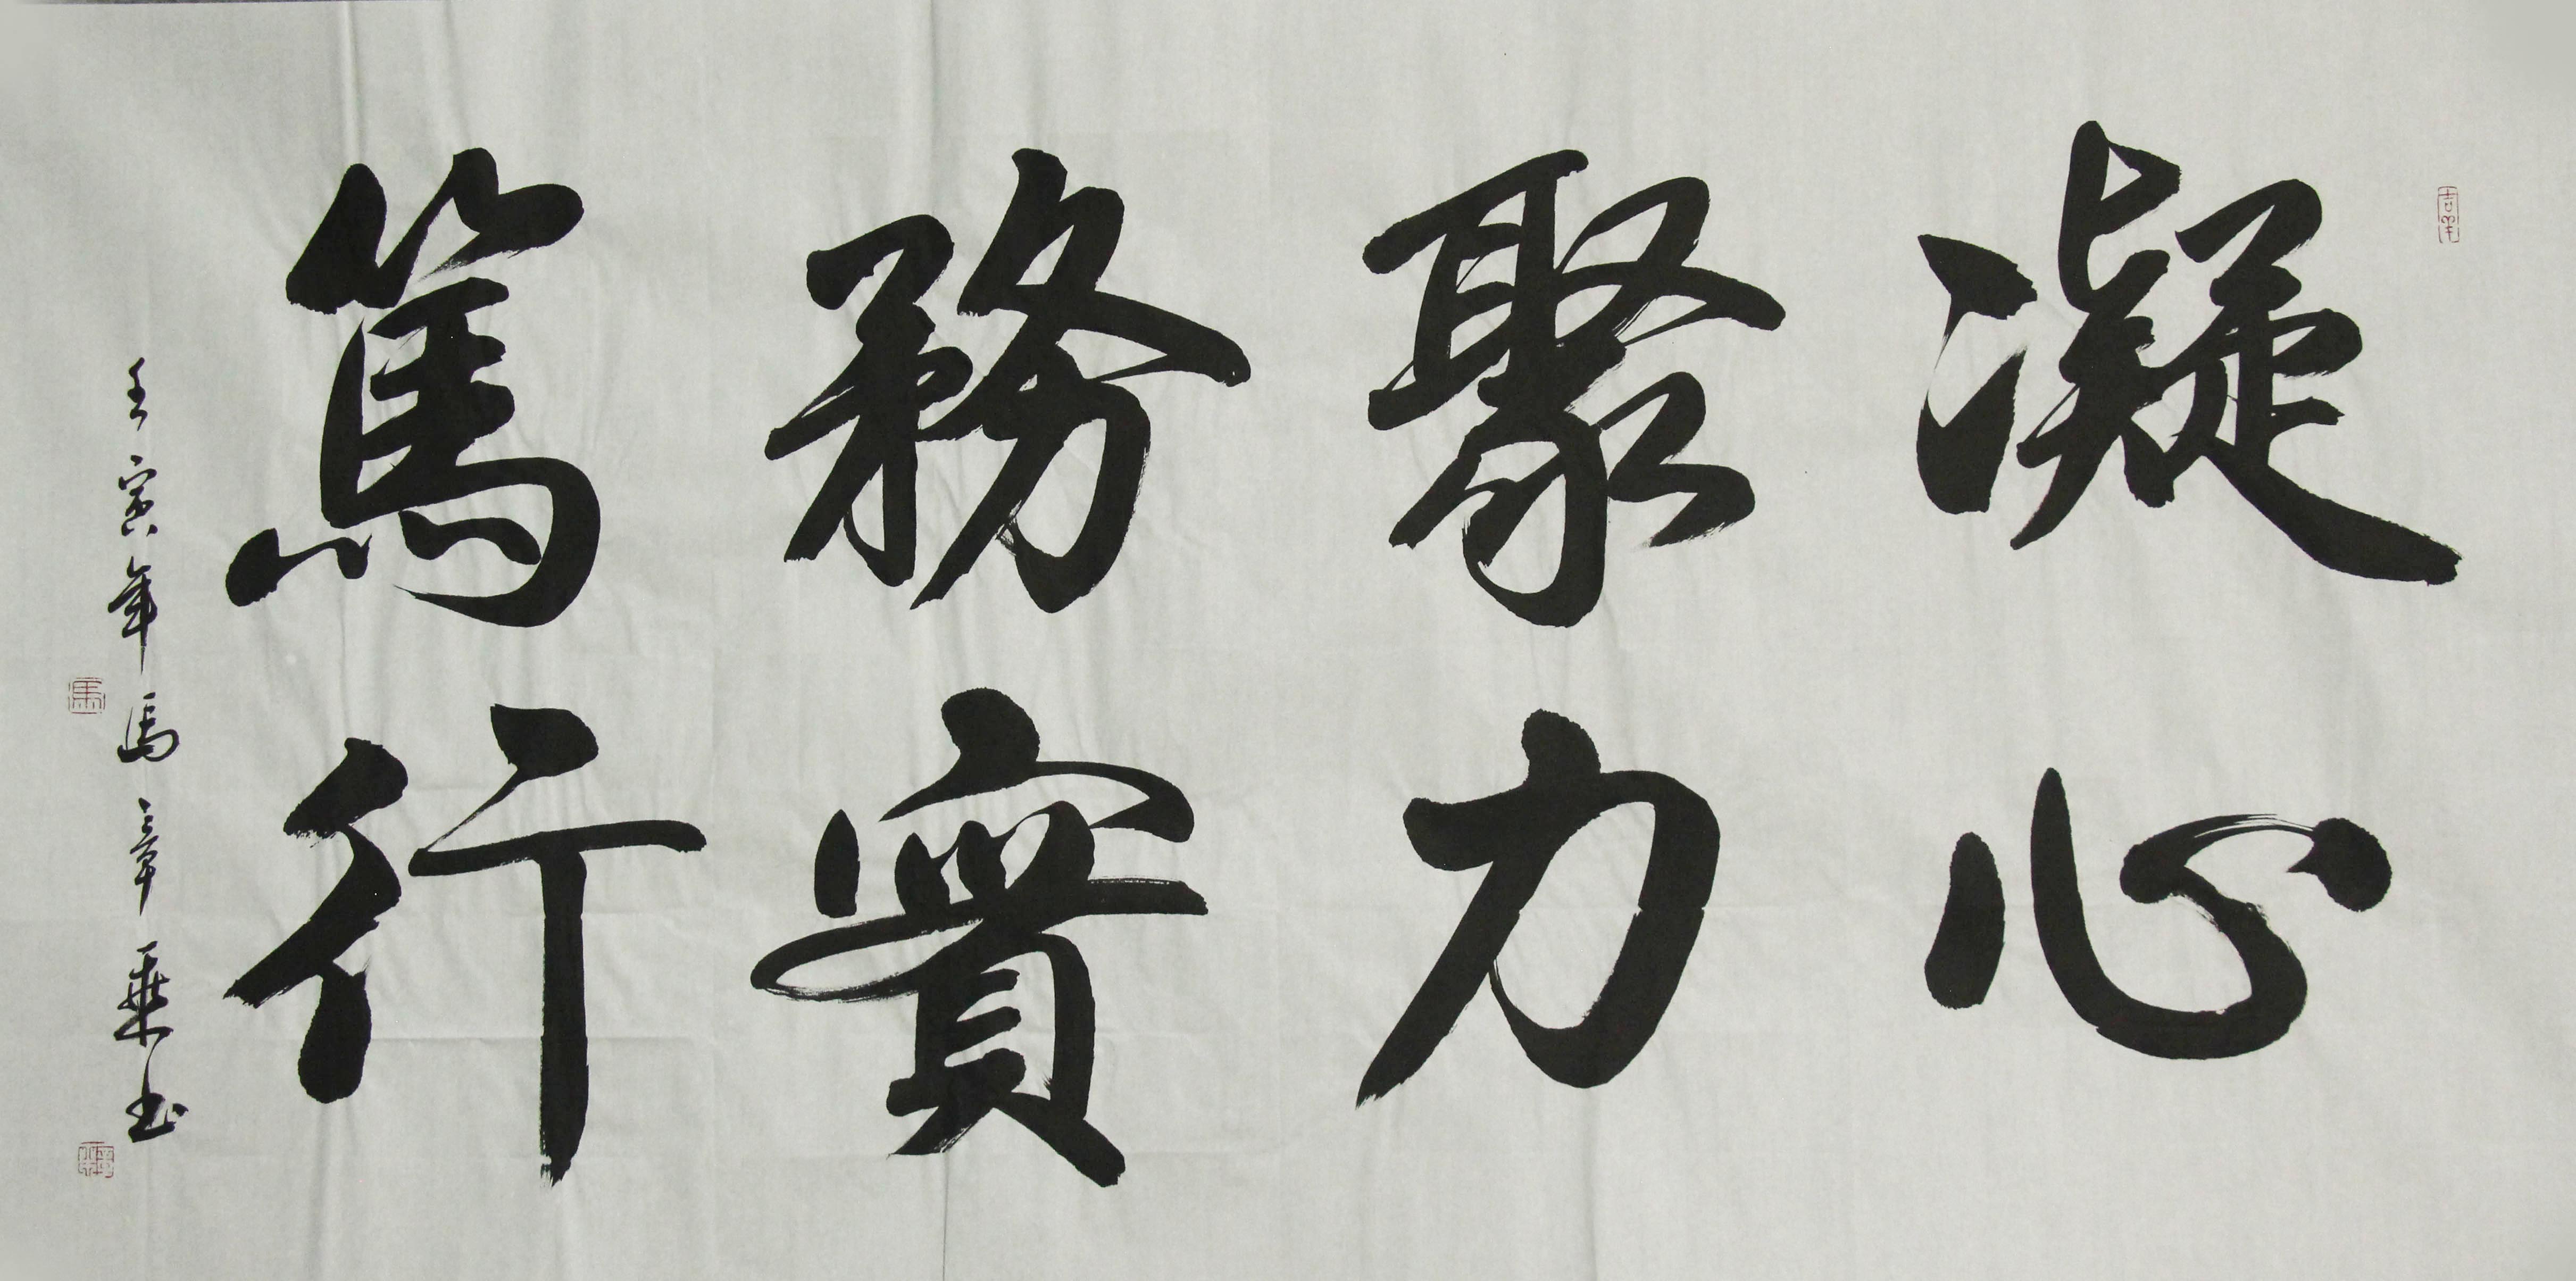 凝心
聚力
務實
篤行
壬寅年馬章乘书